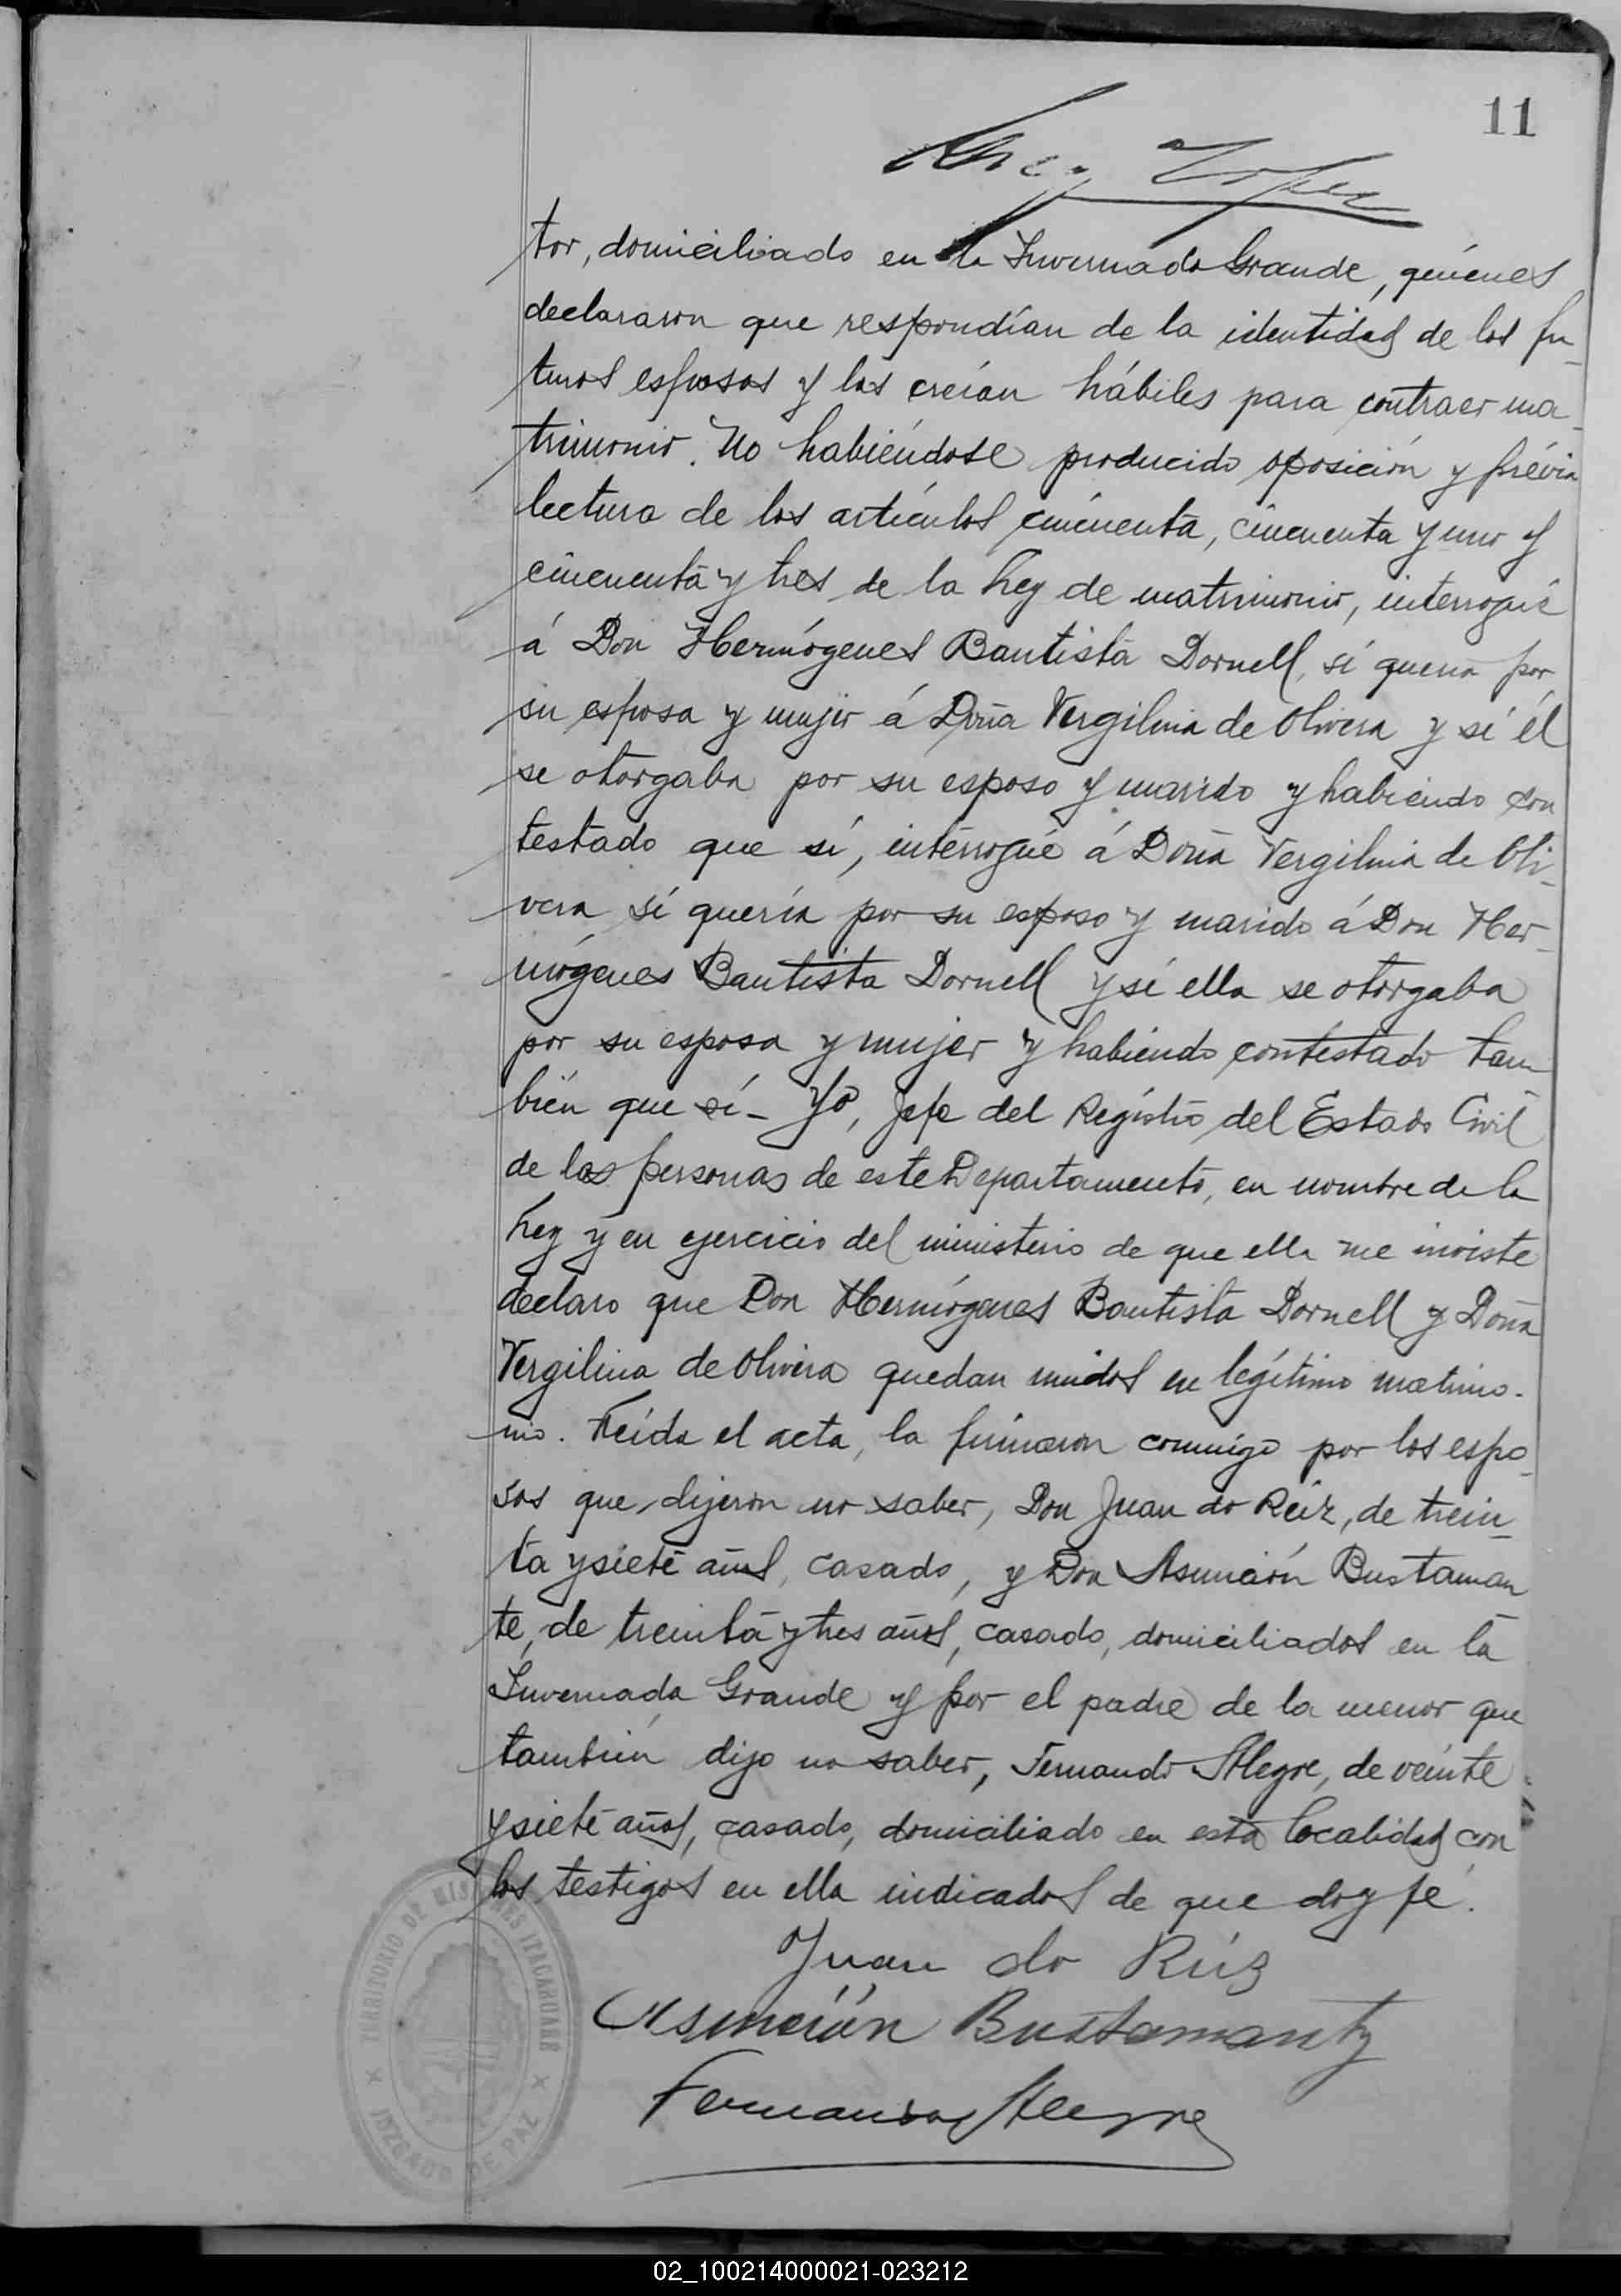 11
tor, domiciliado en la Invernada Grande, quiénes
declararon que respondían de la identidad de los fu-
turos esposos y los creían hábiles para contraer ma-
trimonio. No habiéndose producido oposición y prévia
lectura de los artículos cincuenta, cincuenta y uno y
cincuenta y tres de la Ley de matrimonio, interrogué
á Don Hermógenes Bautista Dornell, sí queria por
su esposa y mujer á Doña Vergilina de Olivera y sí él
se otorgaba por su esposo y marido y habiendo con
testado que sí, interrogué á Doña Vergilina de Oli-
vera sí quería por su esposo y marido á Don Her-
mógenes Bautista Dornell y sí ella se otorgaba
por su esposa y mujer y habiendo contestado tam
bién que sí - Yo, Jefe del Registro del Estado Civil
de las personas de este Departamento, en nombre de la
Ley y en ejercicio del ministerio de que ella me inviste
declaro que Don Hermógenes Bautista Dornell y Doña
Vergilina de Olivera quedan unidos en legítimo matrimo-
nio. Leída el acta, la firmaron conmigo por los espo-
sos que dijeron no saber, Don Juan do Ruiz, de trein-
ta y siete años, casado, y Don Asunción Bustaman
te, de treinta y tres años, casado, domiciliados en la
Invernada Grande y por el padre de la menor que
también dijo no saber, Fernando Alegre, de veinte
y siete años, casado, domiciliado en esta localidad con
los testigos en ella indicados de que doy fé.
Juan do Rúiz
Asunción Bustamante
Fernando Alegre
TERRITORIO DE MISIONES ITACARUARÉ
JUZGADO DE PAZ
02_100214000021-023212